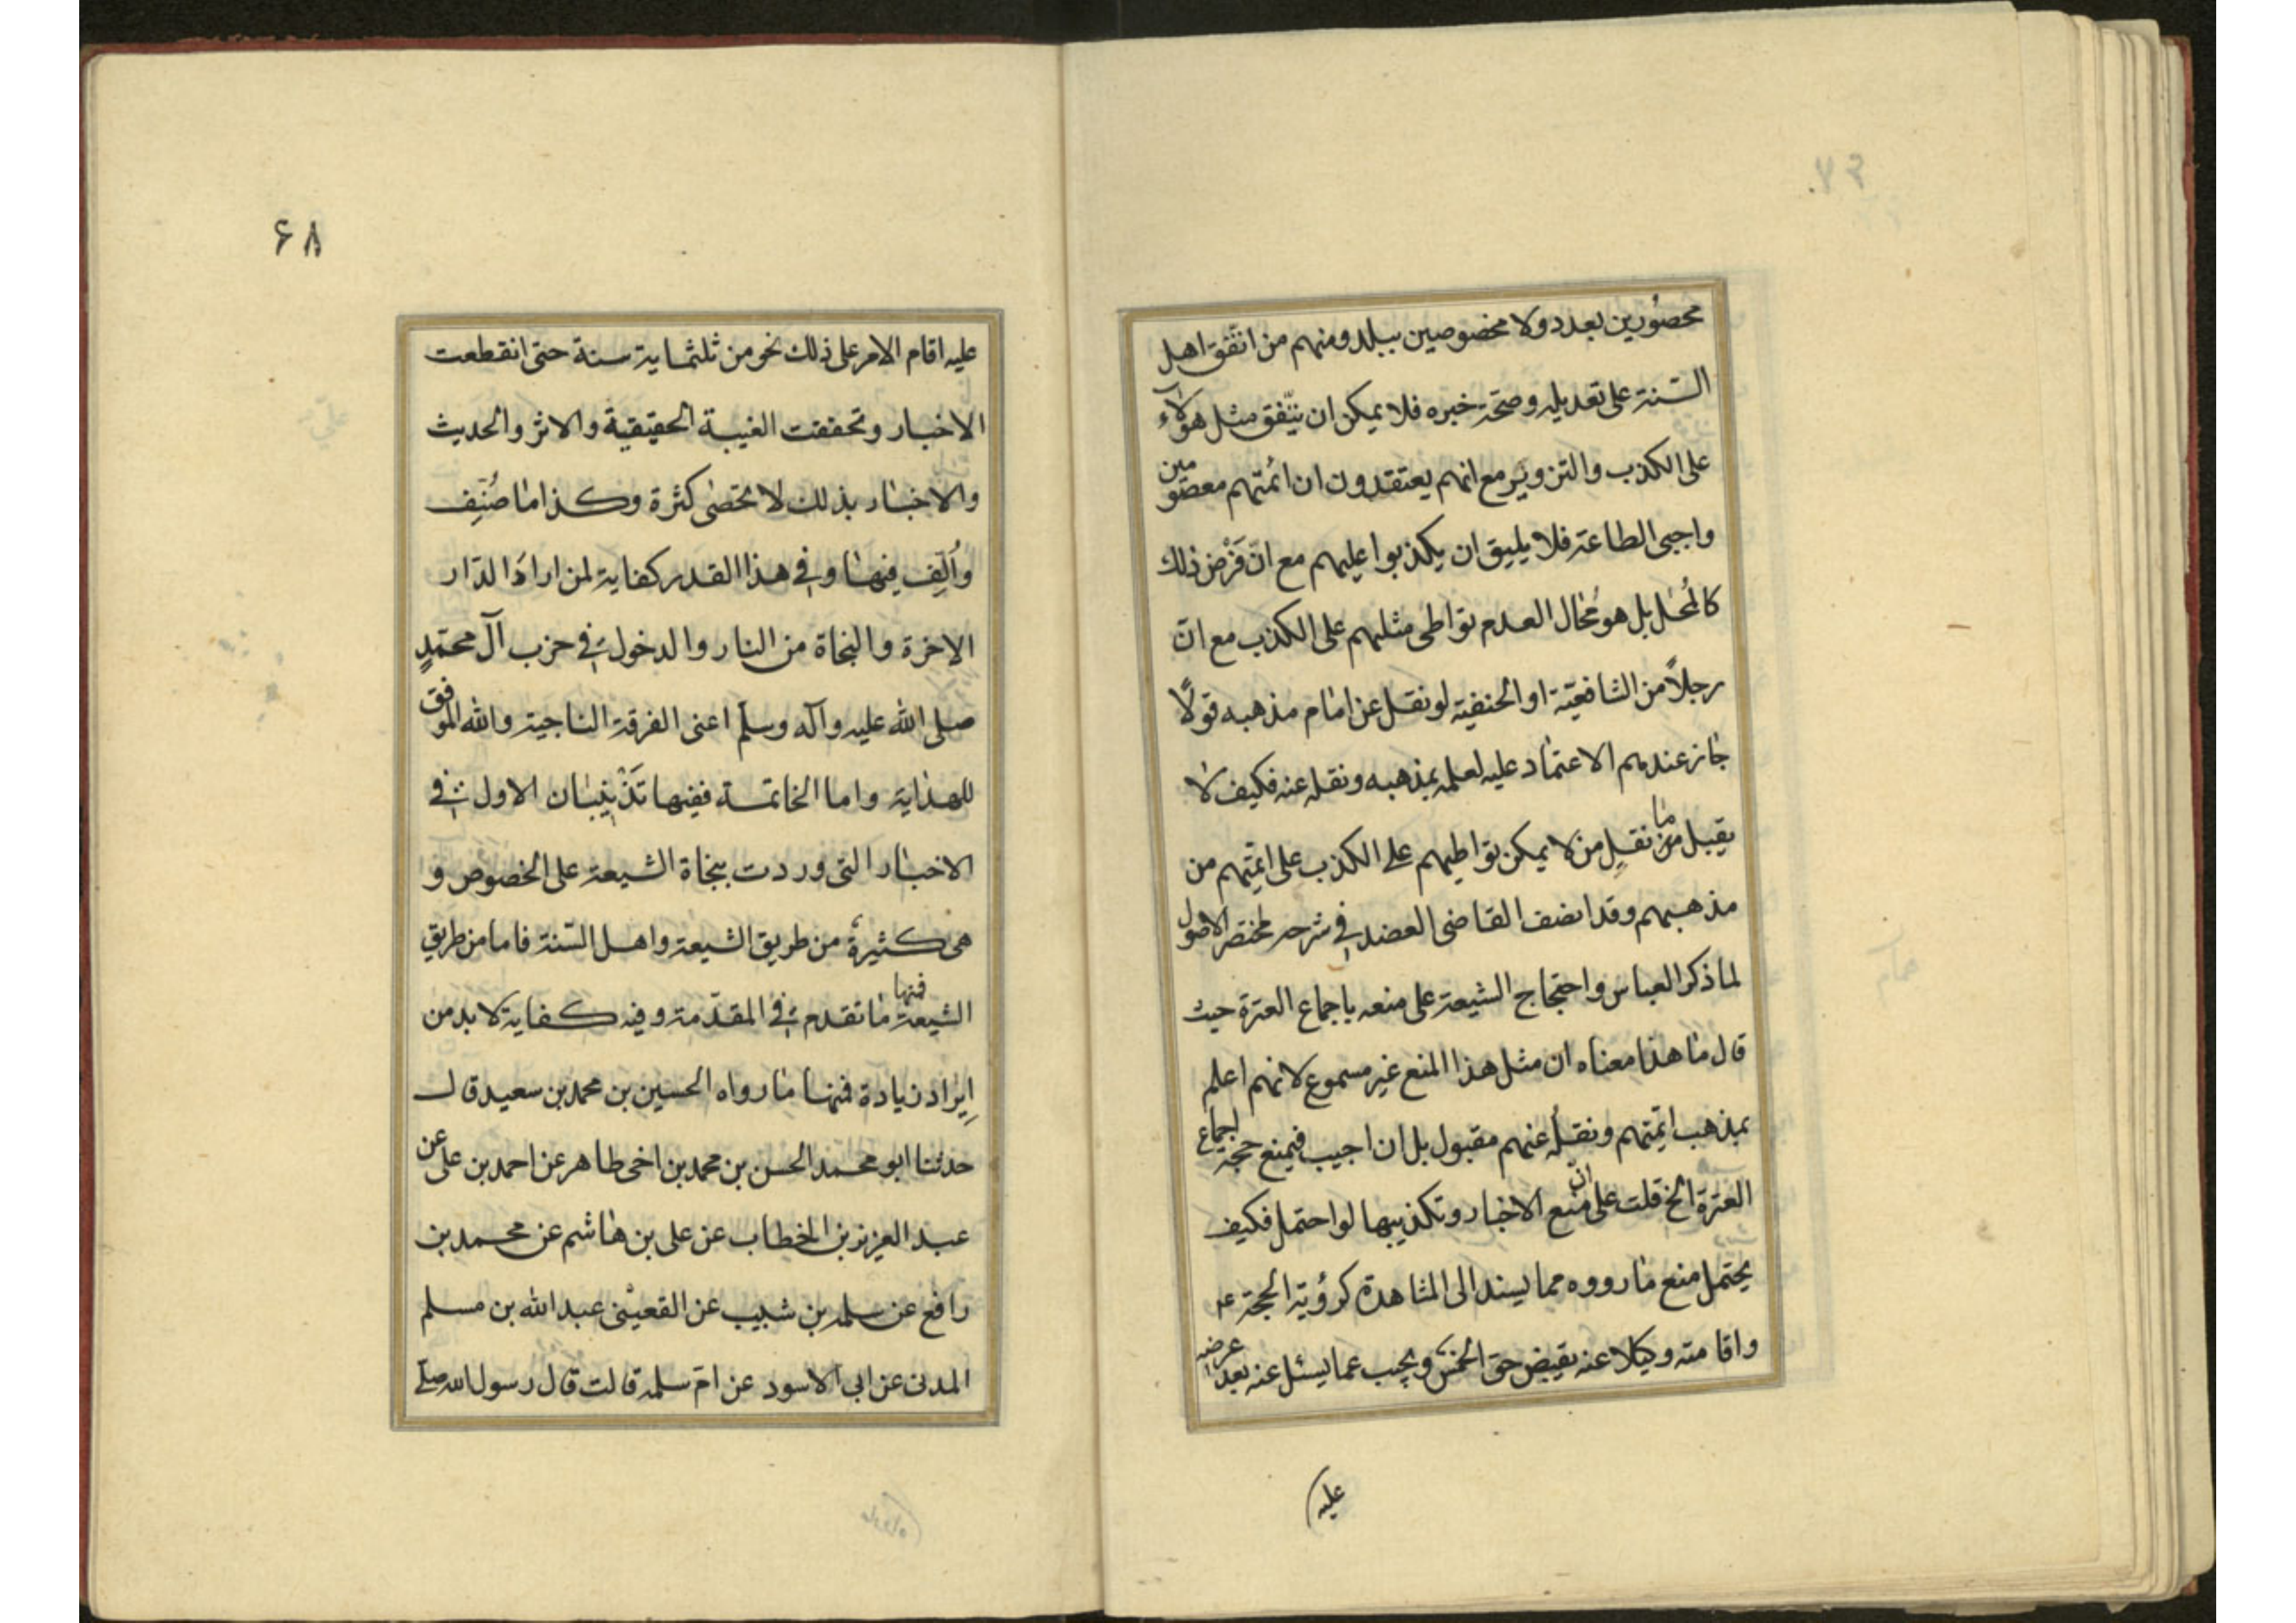 محصورين بعدد ولا مخصوصين ببلد ومنهم من اتفق اهل
السنة على تعديله وصحة خبره فلا يمكن ان يتفق مثل هؤلاء
على الكذب والتزوير مع انهم يعتقدون ان ائمتهم معصومين
واجبى الطاعة فلا يليق ان يكذبوا عليهم مع انّ فَرْض ذلك
كالمُحال بل هو مُحال العدم تواطى مثلهم على الكذب مع انّ
رجلاً من الشافعيّة او الحنفية لو نقل عن امام مذهبه قولًا
جاز عندهم الاعتماد عليه لعلمه بمذهبه ونقله عنه فكيف لا
يقبل ما نقل من لا يمكن تواطيهم على الكذب على ائمّتهم من
مذهبهم وقد انصف القاضى العضد فى شرحه لمختصر الاصول
لما ذكر العباس واحتجاج الشيعة على منعه باجماع العترة حيث
قال ما هذا معناه ان مثل هذا المنع غير مسموع لانهم اعلم
بمذهب ائمّتهم ونقلُه عنهم مقبول بل ان اجيب فبمنع حجية اجماع
العترة الخ قلت على انّ منع الاخبار وتكذيبها لو احتمل فكيف
يحتمل منع ما رووه مما يسند الى المشاهدة كرؤية الحجة عم
واقامته وكيلا عنه يقبض حق الخمس ويجيب عما يسئل عنه بعد عرضه
عليه
۶۸
عليه اقام الامر على ذلك نحو من ثلثماية سنة حتى انقطعت
الاخبار وتحققت الغيبة الحقيقية والاثر والحديث
والاخبار بذلك لا تحصى كثرة وكذا ما صُنِّف
واُلِّف فيها وفى هذا القدر كفاية لمن اراد الدّار
الاخرة والنجاة من النار والدخول فى حزب آل محمّدٍ
صلى الله عليه وآله وسلّم اعنى الفرقة الناجية والله الموفق
للهداية واما الخاتمة ففيها تَذْنيبان الاول فى
الاخبار التى وردت بنجاة الشيعة على الخصوص و
هى كثيرة من طريق الشيعة واهل السّنة فاما من طريق
الشيعة فمنها ما تقدم فى المقدّمة وفيه كفاية لا بد من
اِيراد زيادة فمنها ما رواه الحسين بن محمد بن سعيد قال
حدثنا ابو محمد الحسن بن محمد بن اخى طاهر عن احمد بن على عن
عبد العزيز بن الخطاب عن على بن هاشم عن محمد بن
رافع عن سلمة بن شبيب عن القعينى عبد الله بن مسلم
المدنى عن ابى الاسود عن امّ سلمة قالت قال رسول الله صلى